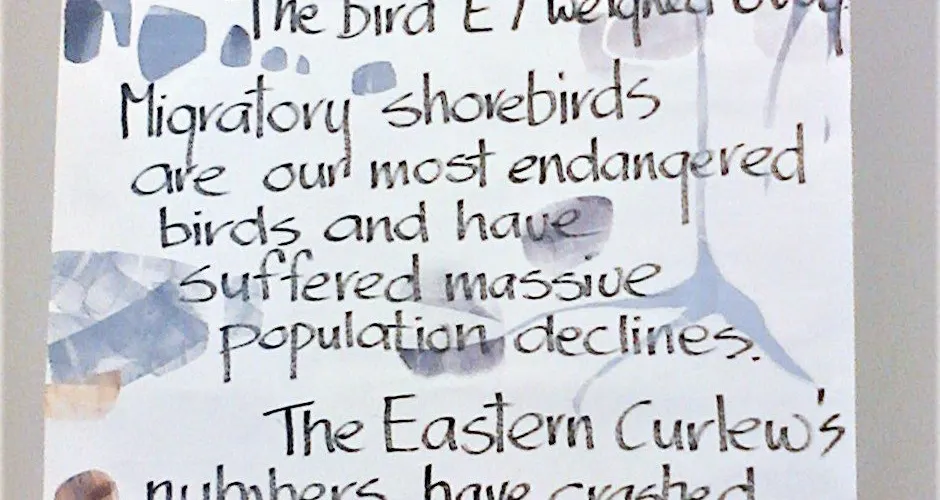 The bird E7 weighed
Migratory shorebirds
are our most endangered
birds and have
suffered massive
population declines.
The Eastern Curlew's
numbers have crashed